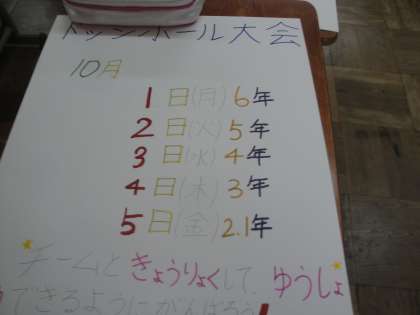 ドッジボール大会
10月
1日(月)6年
2日(火)5年
3日(水)4年
4日(木)3年
5日(金)2.1年
チームときょうりょくして、ゆうしょ
できるようにがんばろう!